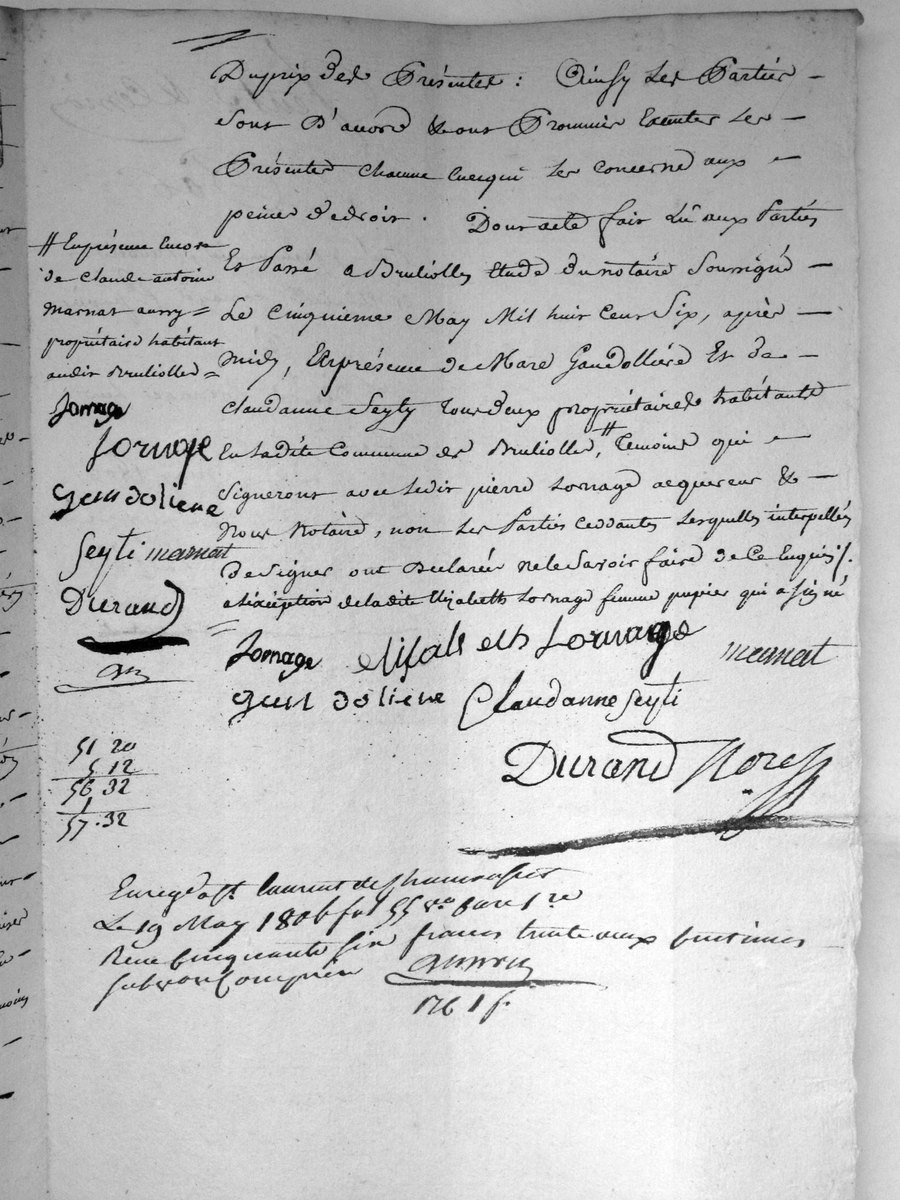 Duprix des Présentes : Ainsy les Parties
sont D'acord & ont Prommis Executer les
Présentes chacune Encequi les concerne aux
peines de droit . Dont acte fait Lû aux Parties
Et Passé a Bruliolles Etude du notaire Soussigné
Le Cinquieme May Mil huit Cent Six, après
midy, Enprésence de Marc Gandollière Et de
Claudanne Seyty tous deux propriétaires habitants
En Ladite Commune de Bruliolles, // Temoins qui
Signeront avec Ledit pierre Jornage acquereur &
Nous Notaire, non les Parties ceddantes Lesquelles interpellées
De Signer ont Déclarées ne le Savoir faire de Ce Enquis /.
a Léxception de ladite Elizabeth Jornage femme pupier qui a signé
// Enprésence Encore
de Claude antoine
Marnat aussy
propriétaire habitant
audit Brulliolles
Jornage
Jornage
gandoliere
Seyti marnat
Durand
Jornage elisab eth Jornage marnat
gandoliere Claudanne Seyti
Durand Nore
51 20
5 12
56 32
1
57.32
Enreg à St. Laurent de Chamousset
Le 19 May 1806 fol 55 vo Case 1re
Reçu Cinquante six francs trente deux Centimes
subvon Comprise
176 1 f.